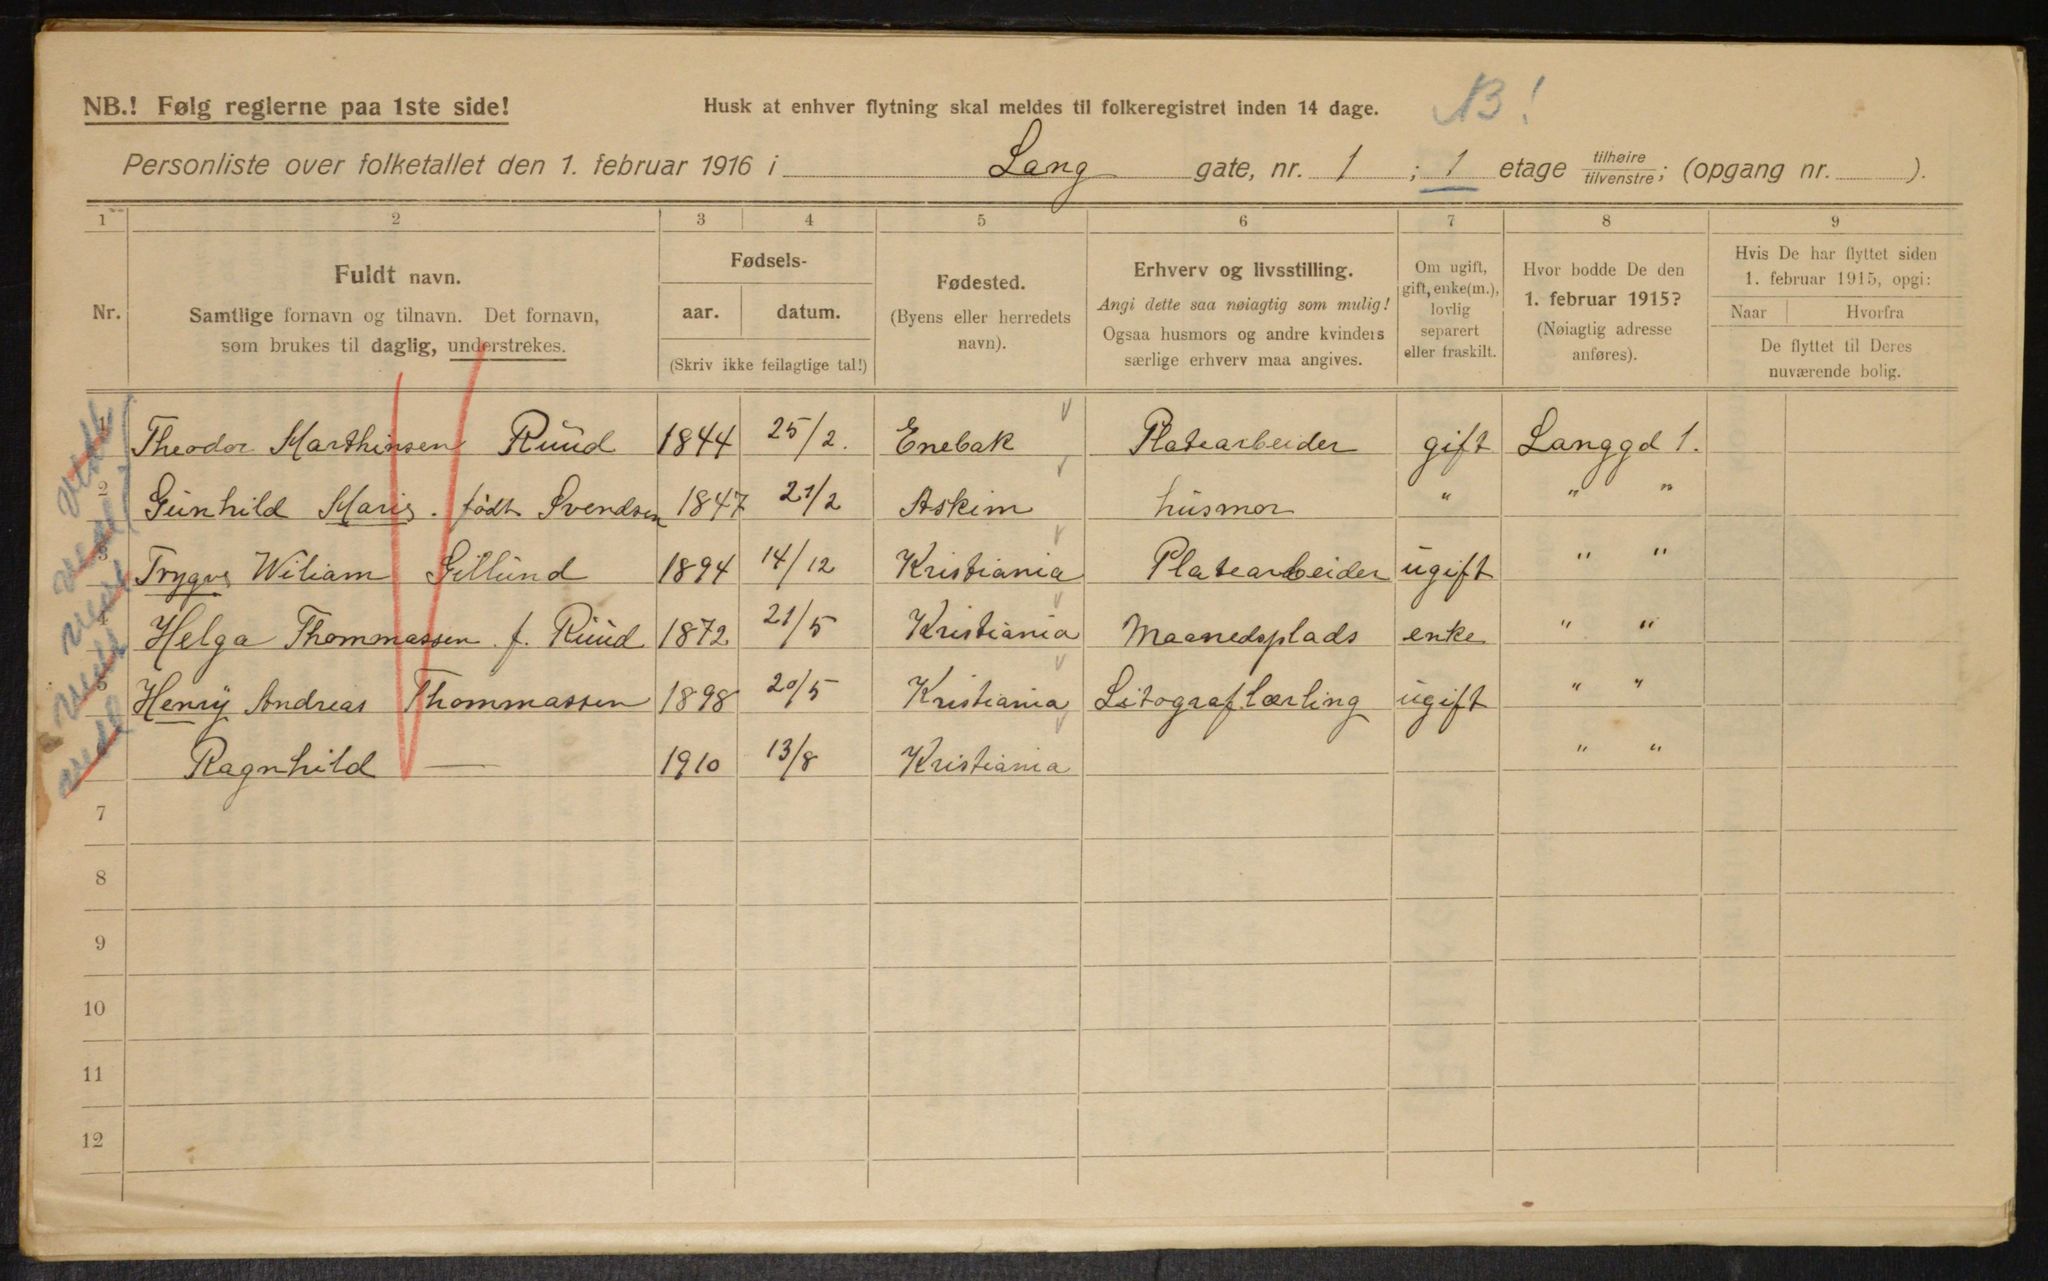 NB.! Følg reglerne paa 1ste side!
Husk at enhver flytning skal meldes til folkeregistret inden 14 dage.
NB!
Personliste over folketallet den 1. februar 1916 i Lang gate, nr. 1 ; 1 etage tilhøire tilvenstre; (opgang nr. ).
1 2 3 4 5 6 7 8 9
Nr.
Fuldt navn.
Samtlige fornavn og tilnavn. Det fornavn,
som brukes til daglig, understrekes.
Fødsels-
aar. datum.
(Skriv ikke feilagtige tal!)
Fødested.
(Byens eller herredets
navn).
Erhverv og livsstilling.
Angi dette saa nøiagtig som mulig!
Ogsaa husmors og andre kvinders
særlige erhverv maa angives.
Om ugift,
gift, enke(m.),
lovlig
separert
eller fraskilt.
Hvor bodde De den
1. februar 1915?
(Nøiagtig adresse
anføres).
Hvis De har flyttet siden
1. februar 1915, opgi:
Naar Hvorfra
De flyttet til Deres
nuværende bolig.
1 Theodor Marthinsen Ruud 1844 25/2. Enebak Platearbeider gift Langgd 1.
2 Gunhild Marie. født Svendsen 1847 21/2 Askim husmor " " "
3 Trygve Wiliam Gillund 1894 14/12 Kristiania Platearbeider ugift " "
4 Helga Thommassen f. Ruud 1872 21/5 Kristiania Maanedsplads enke " "
5 Henry Andreas Thommassen 1898 20/5 Kristiania Litograflærling ugift " "
Ragnhild — 1910 13/8 Kristiania " "
7
8
9
10
11
12